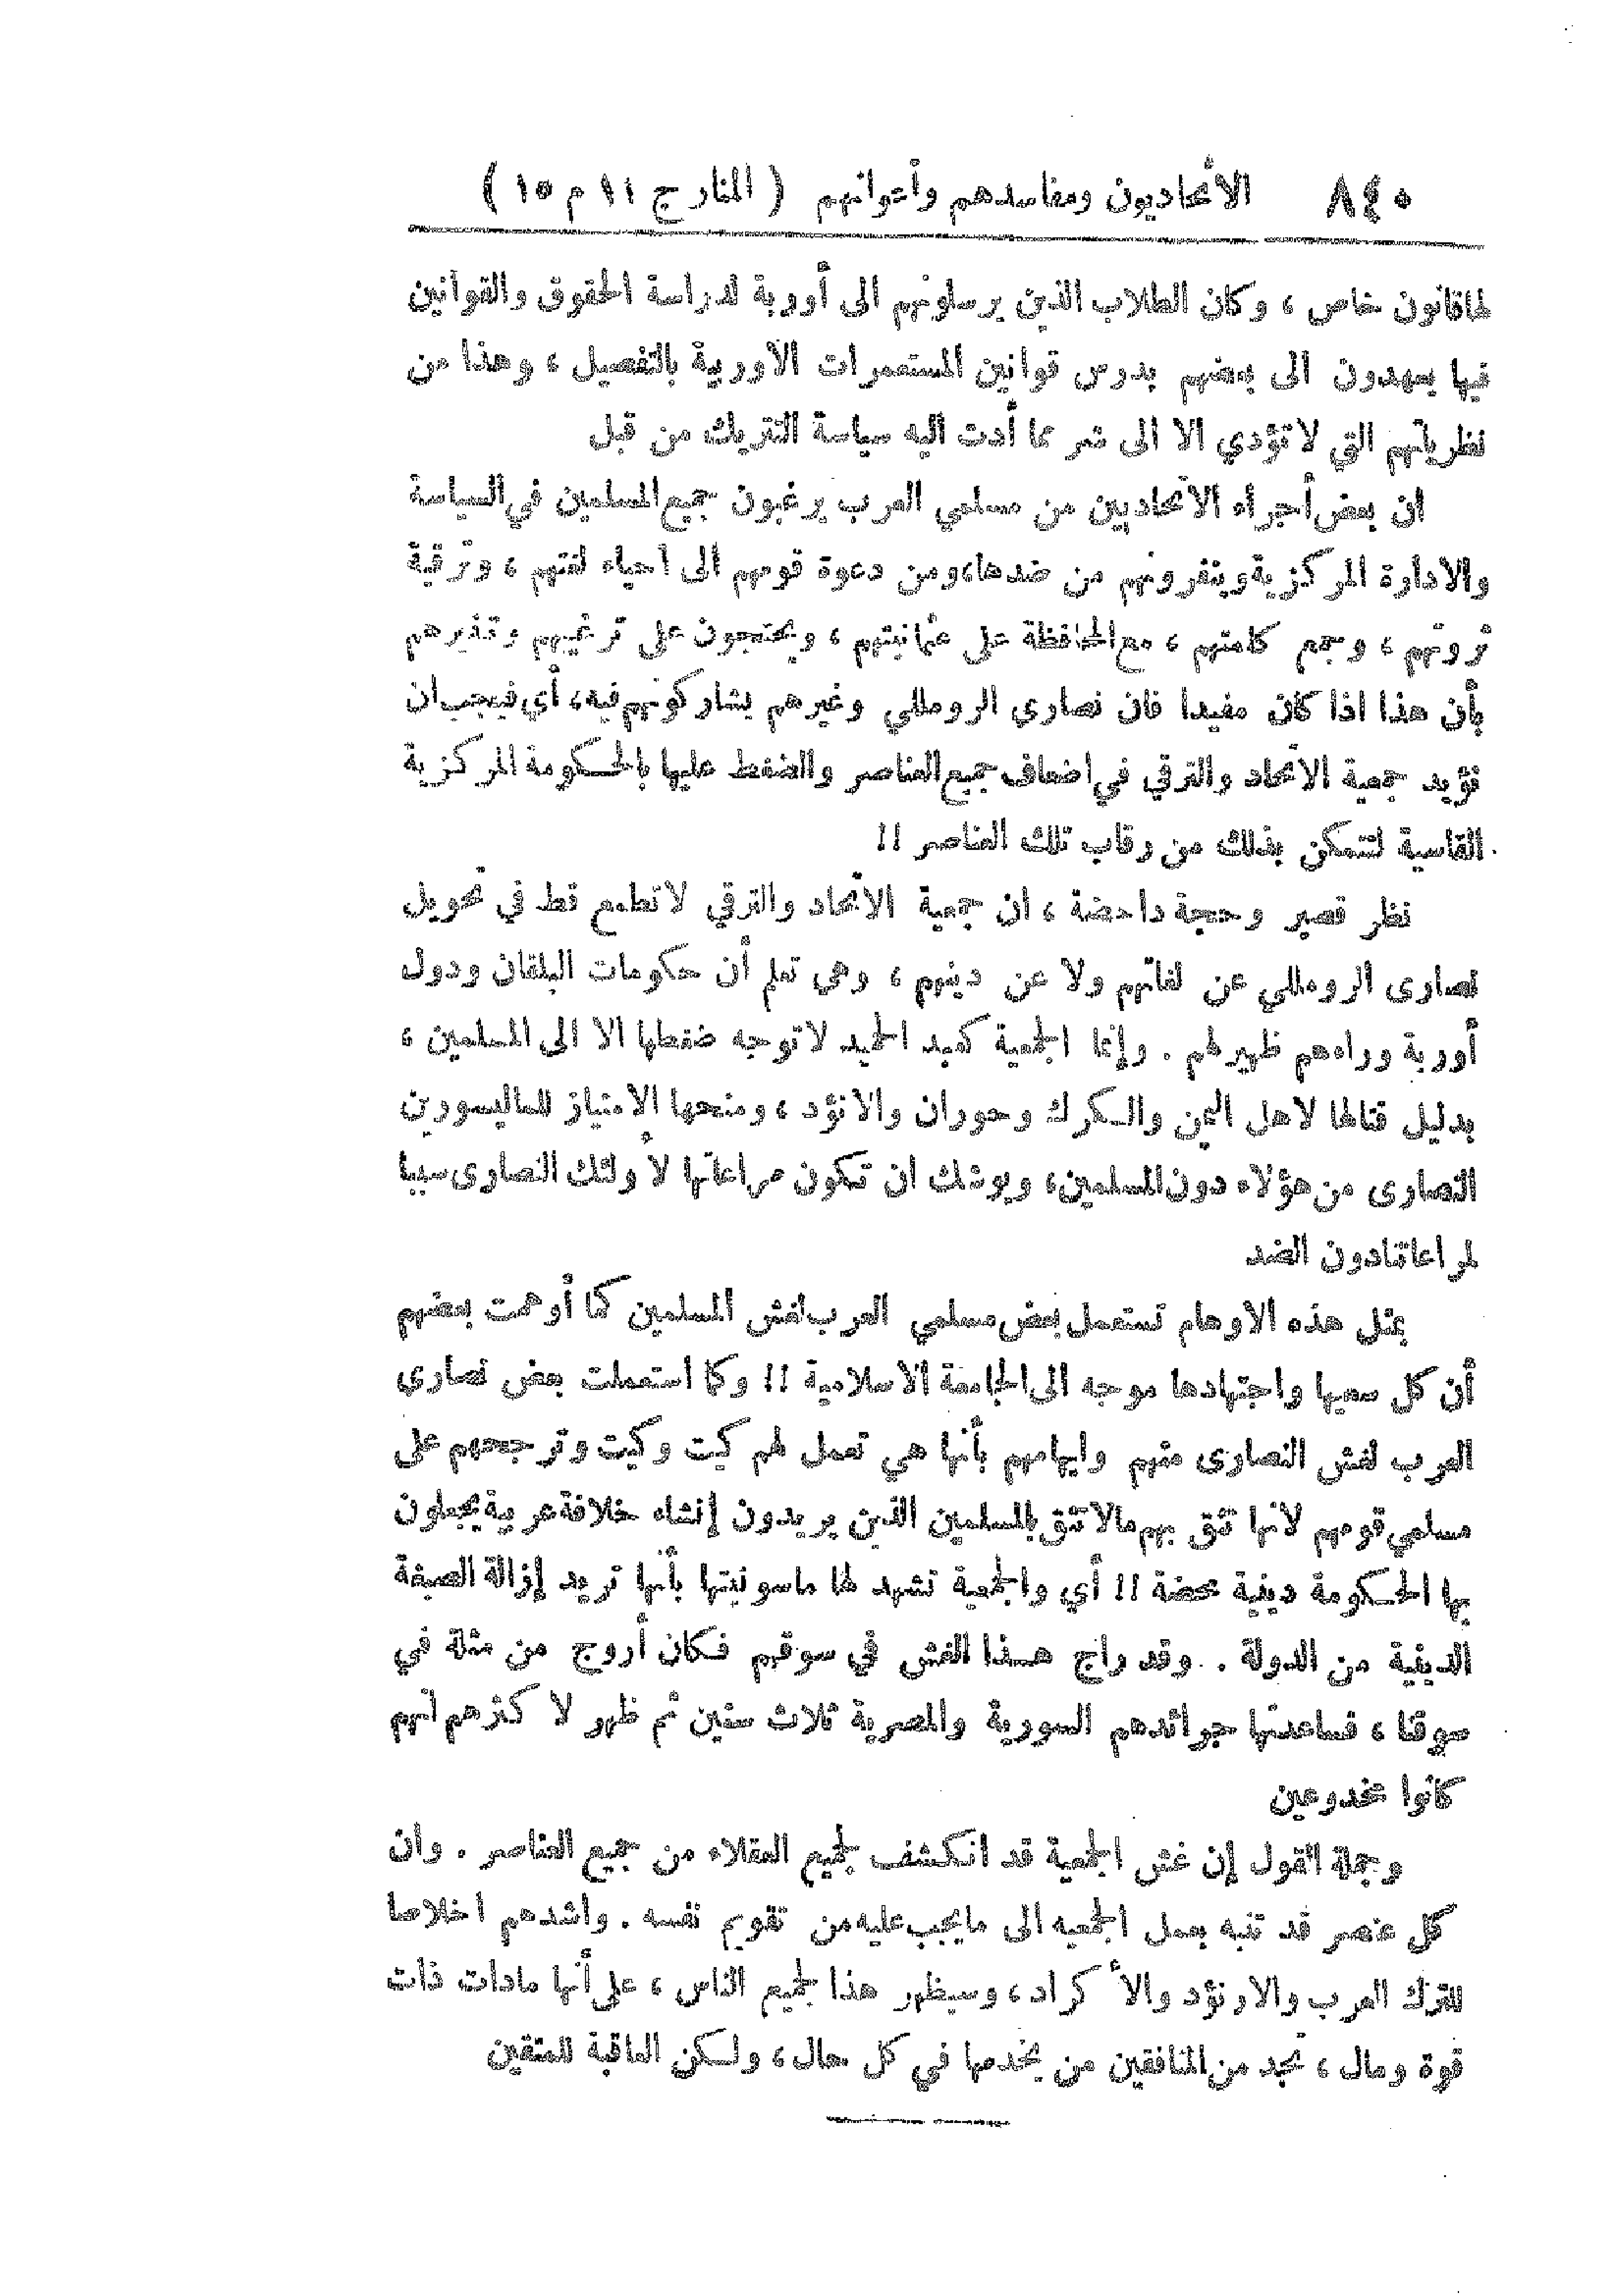 ٨٤٠ الاتحاديون ومفاسدهم وأعوانهم ( المنار ج ١١ م ١٥ )
لها قانون خاص ، وكان الطلاب الذين يرسلونهم الى أوربة لدراسة الحقوق والقوانين
فيها يعهدون الى بعضهم بدرس قوانين المستعمرات الاوربية بالتفصيل ، وهذا من
نظرياتهم التي لا تؤدي الا الى شر مما أدت اليه سياسة التتريك من قبل
ان بعض أجراء الاتحاديين من مسلمي العرب يرغبون جميع المسلمين في السياسة
والادارة المركزية وينفرونهم من ضدها، ومن دعوة قومهم الى احياء لغتهم ، وترقية
ثروتهم ، وجمع كلمتهم ، مع المحافظة على عثمانيتهم ، ويحتجون على ترغيبهم وتنفيرهم
بأن هذا اذا كان مفيدا فان نصارى الرومللي وغيرهم يشاركونهم فيه، أي فيجب ان
نؤيد جمعية الاتحاد والترقي في اضعاف جميع العناصر والضغط عليها بالحكومة المركزية
القاسية لتتمكن بذلك من رقاب تلك العناصر !!
نظر قصير وحجة داحضة ، ان جمعية الاتحاد والترقي لا تطمع قط في تحويل
نصارى الرومللي عن لغاتهم ولا عن دينهم ، وهي تعلم أن حكومات البلقان ودول
أوربة وراءهم ظهير لهم . وإنما الجمعية كعبد الحميد لا توجه ضغطها الا الى المسلمين ،
بدليل قتالها لاهل اليمن والكرك وحوران والارنؤد ، ومنحها الامتياز للماليسورين
النصارى من هؤلاء دون المسلمين، ويوشك ان تكون مراعاتها لأولئك النصارى سببا
لمراعاتنا دون الضد
بمثل هذه الاوهام تستعمل بعض مسلمي العرب لغش المسلمين كما أوهمت بعضهم
أن كل سعيها واجتهادها موجه الى الجامعة الاسلامية !! وكما استعملت بعض نصارى
العرب لغش النصارى منهم وايهامهم بأنها هي تعمل لهم كيت وكيت وترجحهم على
مسلمي قومهم لأنها تثق بهم مالا تثق بالمسلمين الذين يريدون إنشاء خلافة عربية يجعلون
بها الحكومة دينية محضة !! أي والجمعية تشهد لها ماسونيتها بأنها تريد إزالة الصبغة
الدينية من الدولة . وقد راج هذا الغش في سوقهم فكان أروج من مثله في
سوقنا ، فساعدتها جرائدهم السورية والمصرية ثلاث سنين ثم ظهر لاكثرهم انهم
كانوا مخدوعين
وجملة القول إن غش الجمعية قد انكشف لجميع العقلاء من جميع العناصر . وان
كل عنصر قد تنبه بعمل الجمعيه الى ما يجب عليه من تقويم نفسه . واشدهم اخلاصا
للترك العرب والارنؤد والأكراد ، وسيظهر هذا لجميع الناس ، على أنها مادات ذات
قوة ومال ، تجد من المنافقين من يخدمها في كل حال ، ولكن العاقبة للمتقين